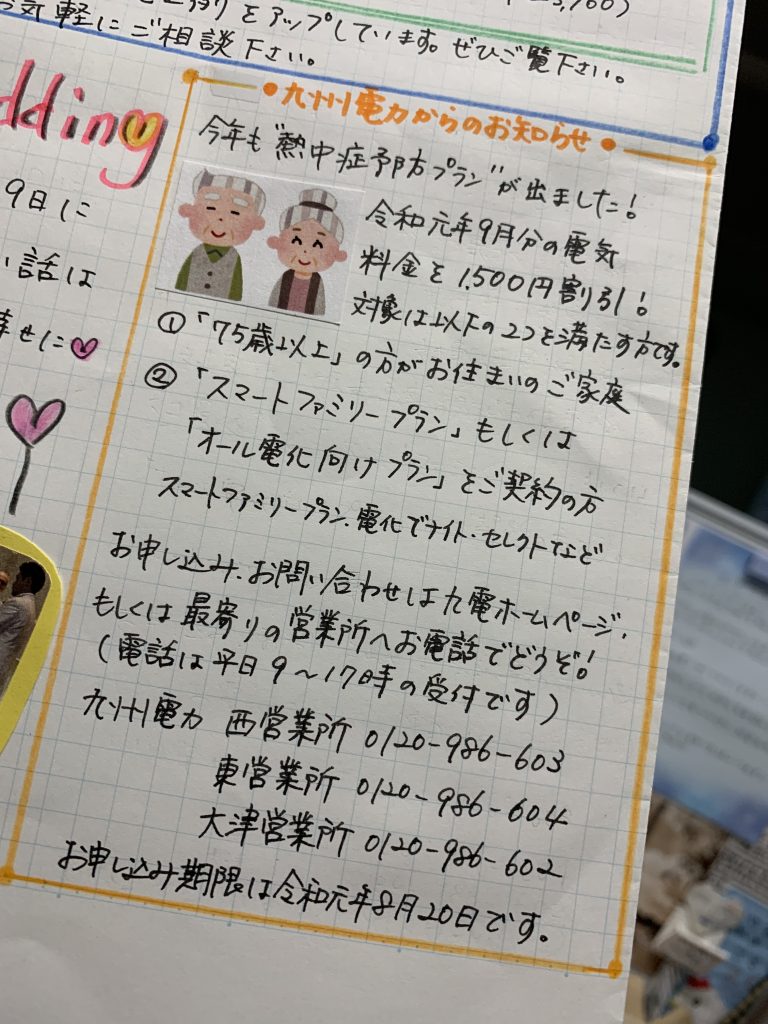 をアップしています。ぜひご覧下さい。
気軽にご相談下さい。
dding
9日に
話は
せに
九州電力からのお知らせ
今年も"熱中症予防プラン"が出ました!
令和元年9月分の電気
料金を1,500円割引!
対象は以下の2つを満たす方です。
①「75歳以上」の方がお住まいのご家庭
②「スマートファミリープラン」もしくは
「オール電化向けプラン」をご契約の方
スマートファミリープラン、電化でナイト・セレクトなど
お申し込み、お問い合わせは九電ホームページ、
もしくは最寄りの営業所へお電話でどうぞ!
(電話は平日9~17時の受付です)
九州電力 西営業所 0120-986-603
東営業所 0120-986-604
大津営業所 0120-986-602
お申し込み期限は令和元年8月20日です。